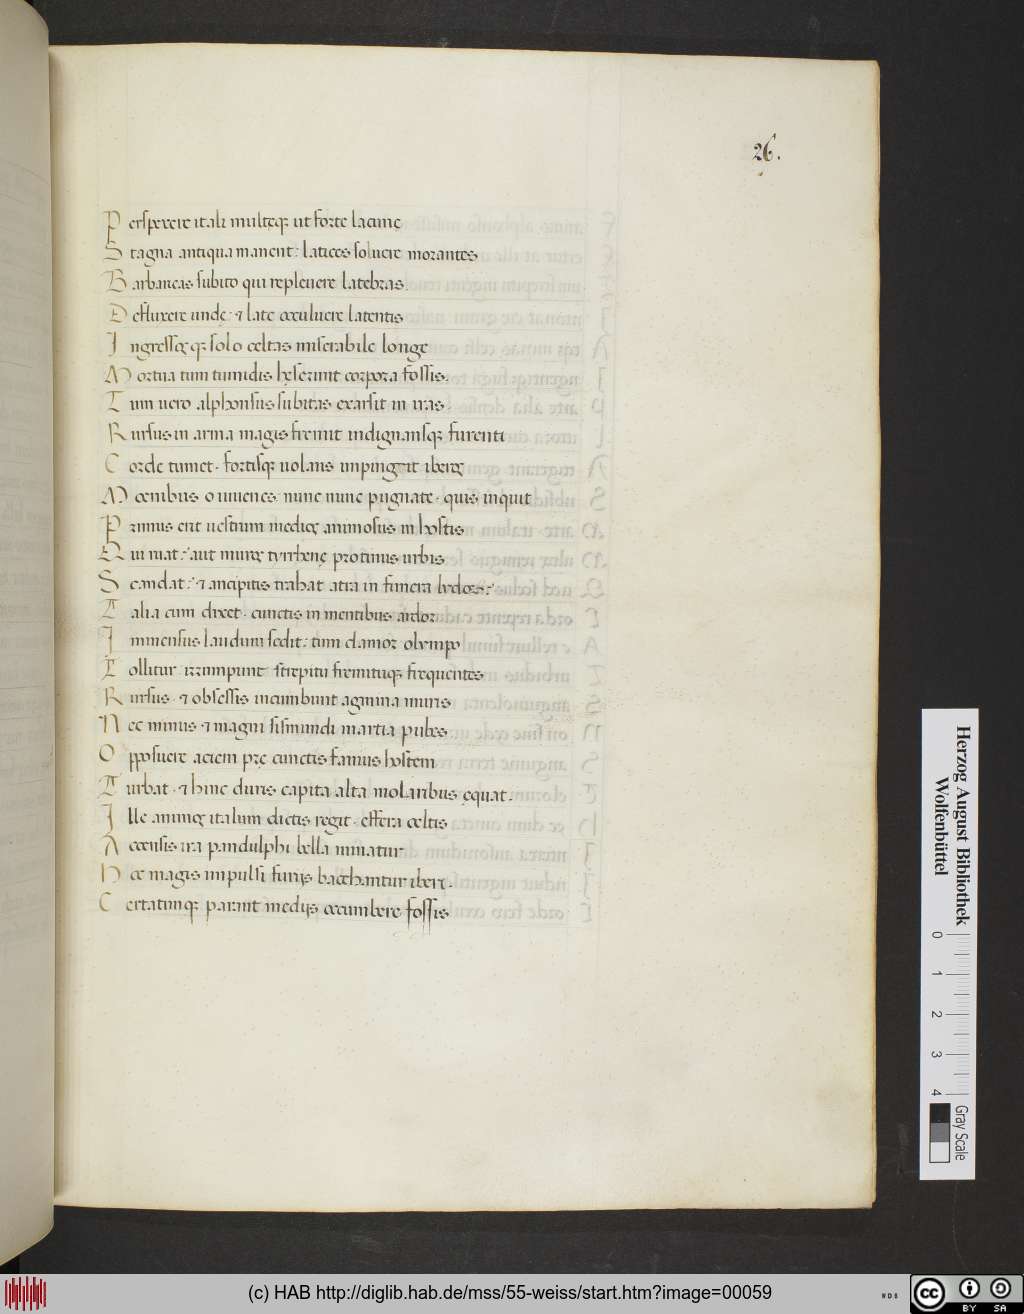 26.
Perspexere itali multęq; ut forte lacunę
Stagna antiqua manent: latices soluere morantes
Barbaricas subito qui repleuere latebras.
Effluxere undę: ⁊ late occuluere latentis
Ingressęq; solo celtas miserabile longe
Mortua tum tumidis hęserunt corpora fossis.
Tum uero alphonsus subitas exarsit in iras
Rursus in arma magis fremit indignansq; furenti
Corde tumet. fortisq; uolans impingit iberę
Moenibus o iuuenes nunc nunc pugnate. quis inquit
Primus erit uestrum medios animosus in hostis
Qui ruat: aut muros tyrrhenę protinus urbis
Scandat: ⁊ ancipitis trahat atra in funera lydos:
Talia cum dixet. cunctis in mentibus ardor
Immensus laudum sedit: tum clamor olympo
Tollitur irrumpunt strepitu fremituq; frequentes
Rursus. ⁊ obsessis incumbunt agmina muris
Nec minus ⁊ magni sismundi martia pubes
Opposuere aciem prę cunctis famus hostem
Turbat. ⁊ hinc duris capita alta molaribus ęquat.
Ille animos italum dictis regit. effera celtis
Accensis ira pandulphi bella minatur
Hoc magis impulsi furijs bacchantur iberi.
Certatimq; parant medijs occumbere fossis
Herzog August Bibliothek
Wolfenbüttel
0 1 2 3 4
Gray Scale
(c) HAB http://diglib.hab.de/mss/55-weiss/start.htm?image=00059
cc BY SA